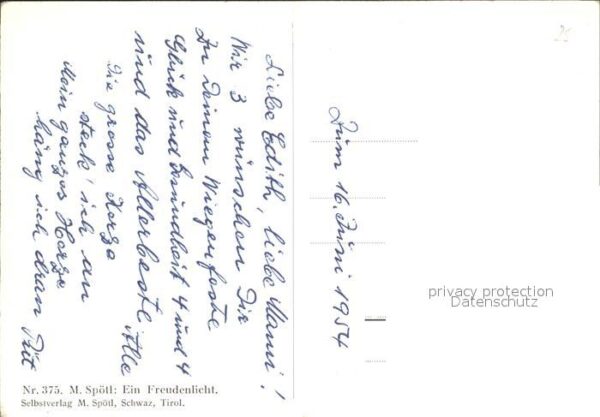 Liebe Edith, liebe Mami!
Wir 3 wünschen Dir
Zu Deinem Wiegenfeste
Glück und Gesundheit 4 und 4
und das Allerbeste. Alle
Die grosse Kerze
steck' ich an
Mein ganzes Herze
häng ich dran
Zum 16. Juni 1954
privacy protection
Datenschutz
Nr. 375. M. Spötl: Ein Freudenlicht.
Selbstverlag M. Spötl, Schwaz, Tirol.